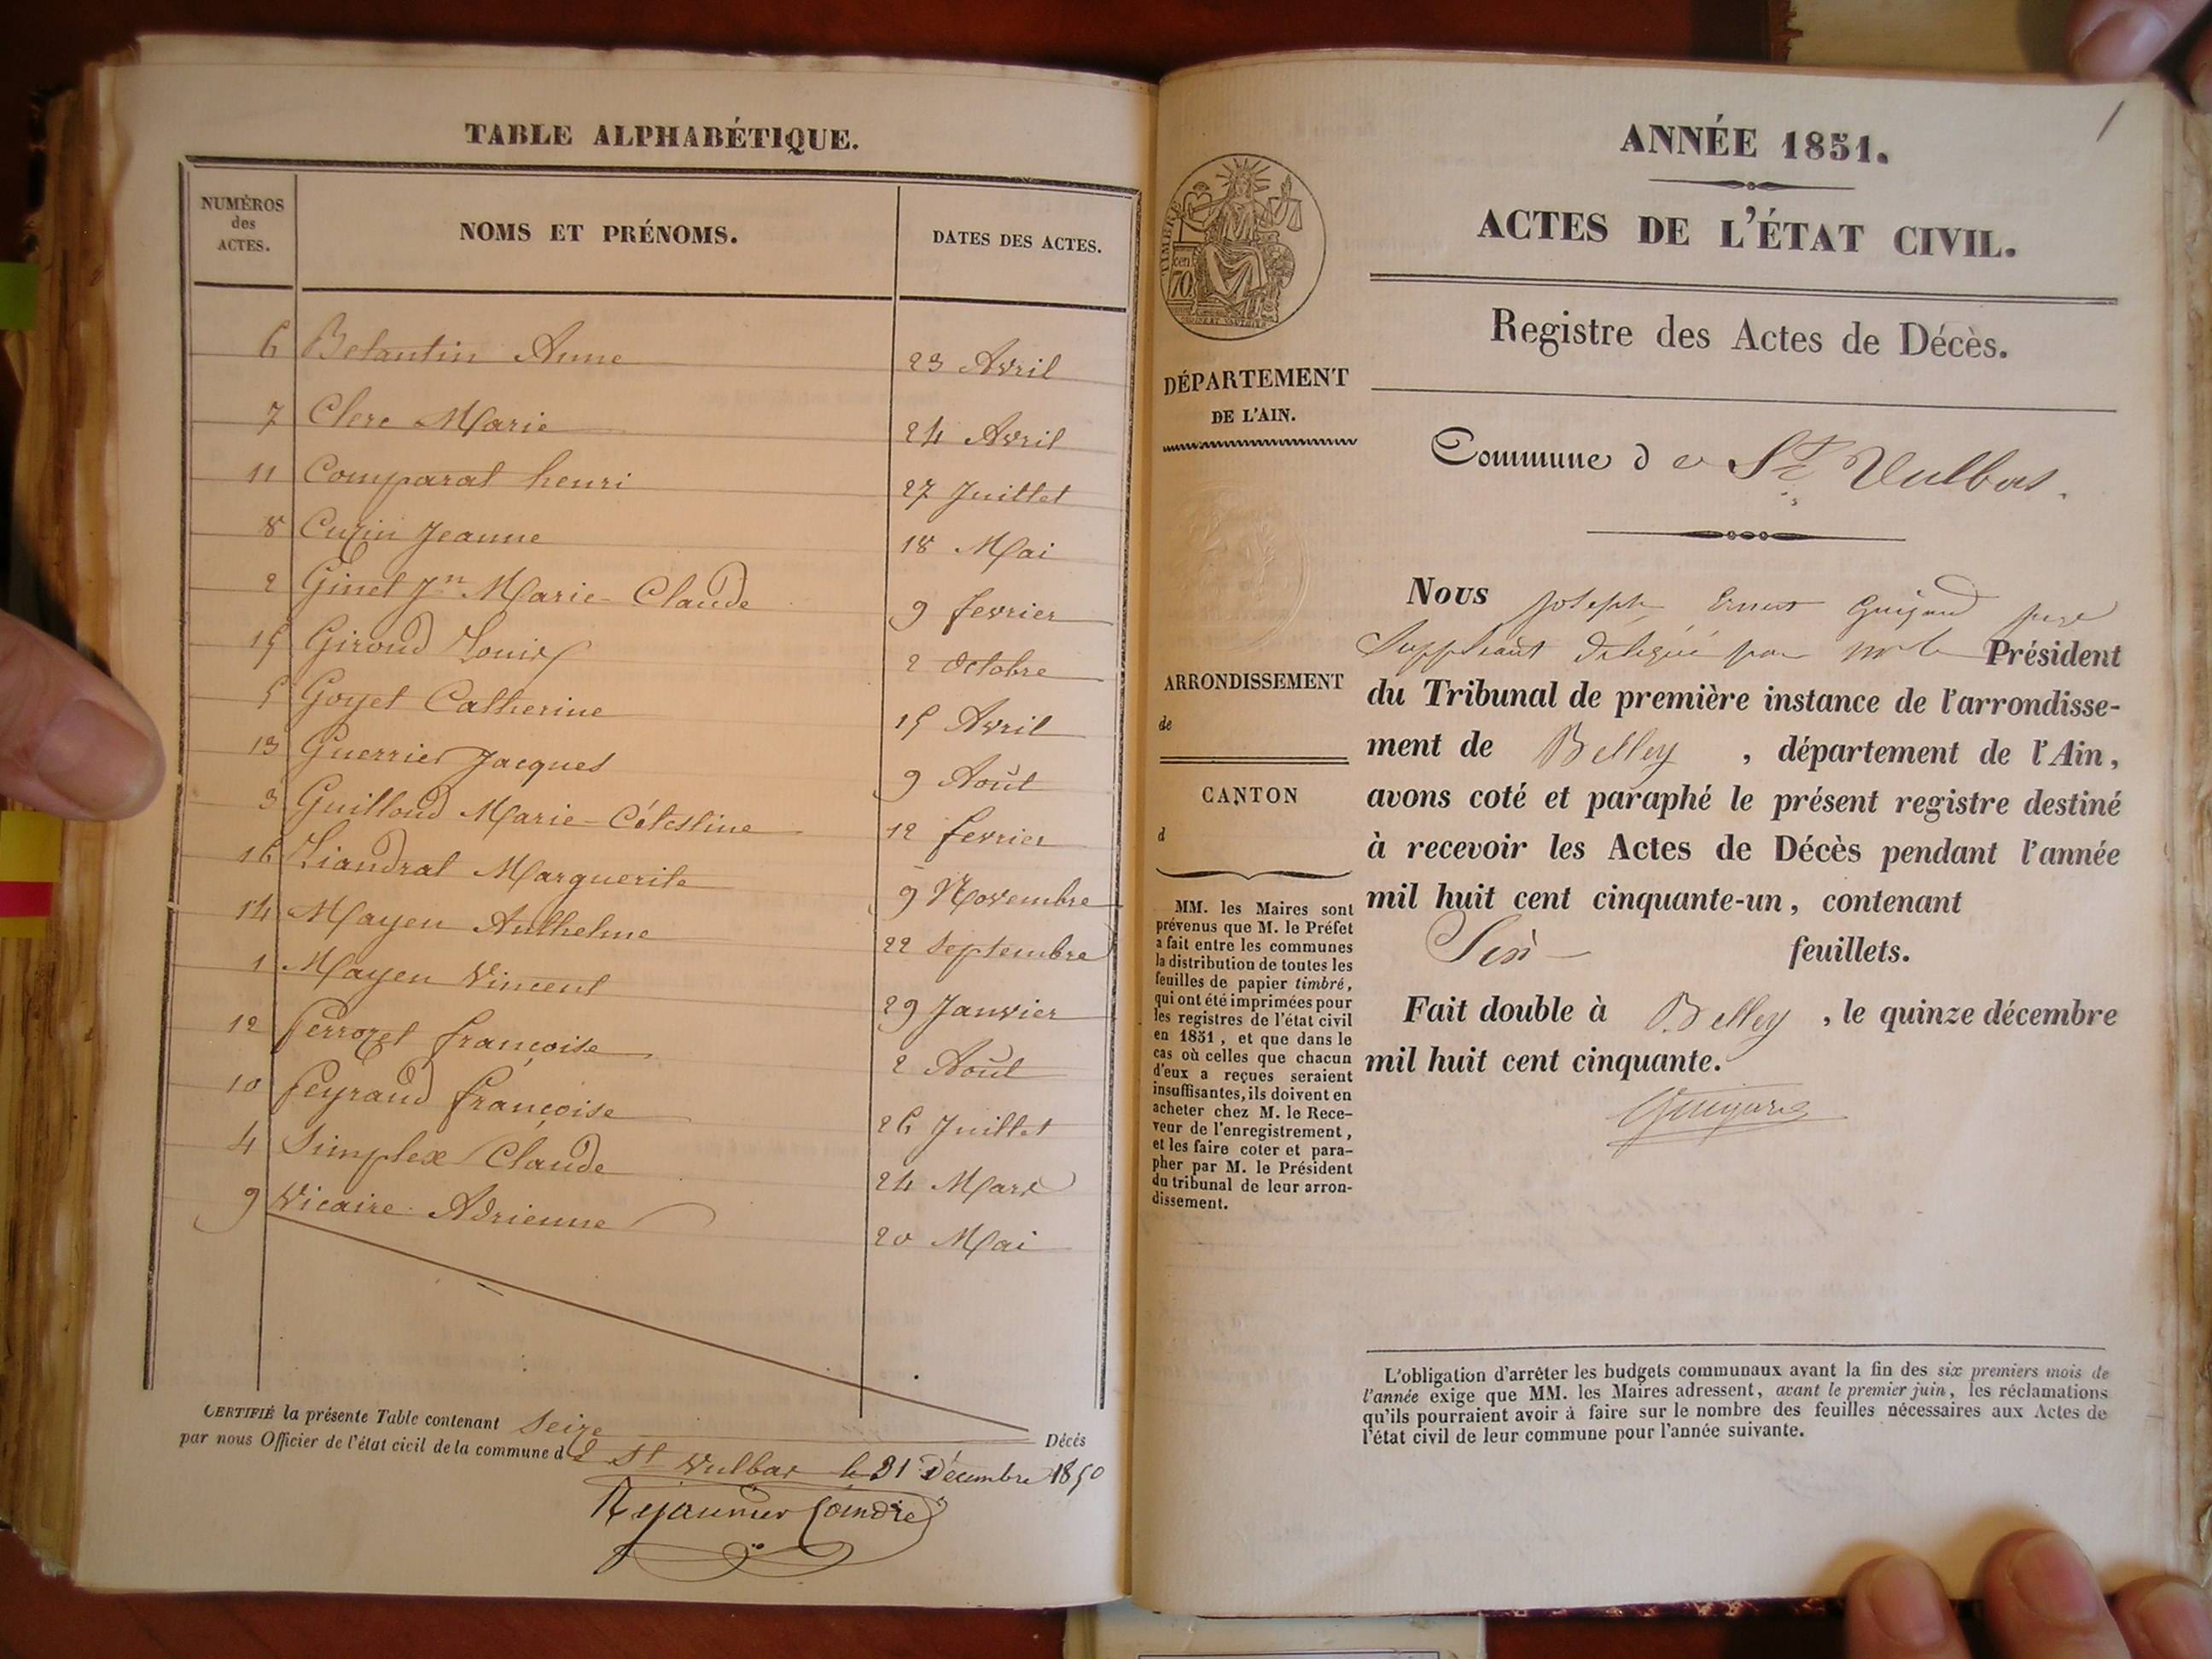 TABLE ALPHABÉTIQUE.
NUMÉROS
des
ACTES.
NOMS ET PRÉNOMS.
DATES DES ACTES.
6 Belantin Anne 23 Avril
7 Clerc Marie 24 Avril
11 Comparat henri 27 Juillet
8 Cuzin Jeanne 18 Mai
2 Ginet Jn Marie-Claude 9 fevrier
15 Giroud Louis 2 Octobre
5 Goyet Catherine 15 Avril
13 Guerrier Jacques 9 Août
3 Guilloud Marie-Célestine 12 fevrier
16 Liandrat Marguerite 9 Novembre
14 Mayen Anthelme 22 Septembre
1 Mayen Vincent 29 Janvier
12 Perrozet françoise 2 Août
10 Peyraud françoise 26 Juillet
4 Simplex Claude 24 Mars
9 Vicaire Adrienne 20 Mai
CERTIFIÉ la présente Table contenant Seize Décès
par nous Officier de l'état civil de la commune de St Vulbas le 31 Décembre 1850
ANNÉE 1851.
ACTES DE L'ÉTAT CIVIL.
Registre des Actes de Décès.
Commune de St Vulbas.
Nous Joseph Ernest Guigard juge
Suppléant délégué par Mr le Président
du Tribunal de première instance de l'arrondisse-
ment de Belley, département de l'Ain,
avons coté et paraphé le présent registre destiné
à recevoir les Actes de Décès pendant l'année
mil huit cent cinquante-un, contenant
Six feuillets.
Fait double à Belley, le quinze décembre
mil huit cent cinquante.
TIMBRE
cen
70
DÉPARTEMENT
DE L'AIN.
ARRONDISSEMENT
de
CANTON
d
MM. les Maires sont
prévenus que M. le Préfet
a fait entre les communes
la distribution de toutes les
feuilles de papier timbré,
qui ont été imprimées pour
les registres de l'état civil
en 1851, et que dans le
cas où celles que chacun
d'eux a reçues seraient
insuffisantes, ils doivent en
acheter chez M. le Rece-
veur de l'enregistrement,
et les faire coter et para-
pher par M. le Président
du tribunal de leur arron-
dissement.
L'obligation d'arrêter les budgets communaux avant la fin des six premiers mois de
l'année exige que MM. les Maires adressent, avant le premier juin, les réclamations
qu'ils pourraient avoir à faire sur le nombre des feuilles nécessaires aux Actes de
l'état civil de leur commune pour l'année suivante.